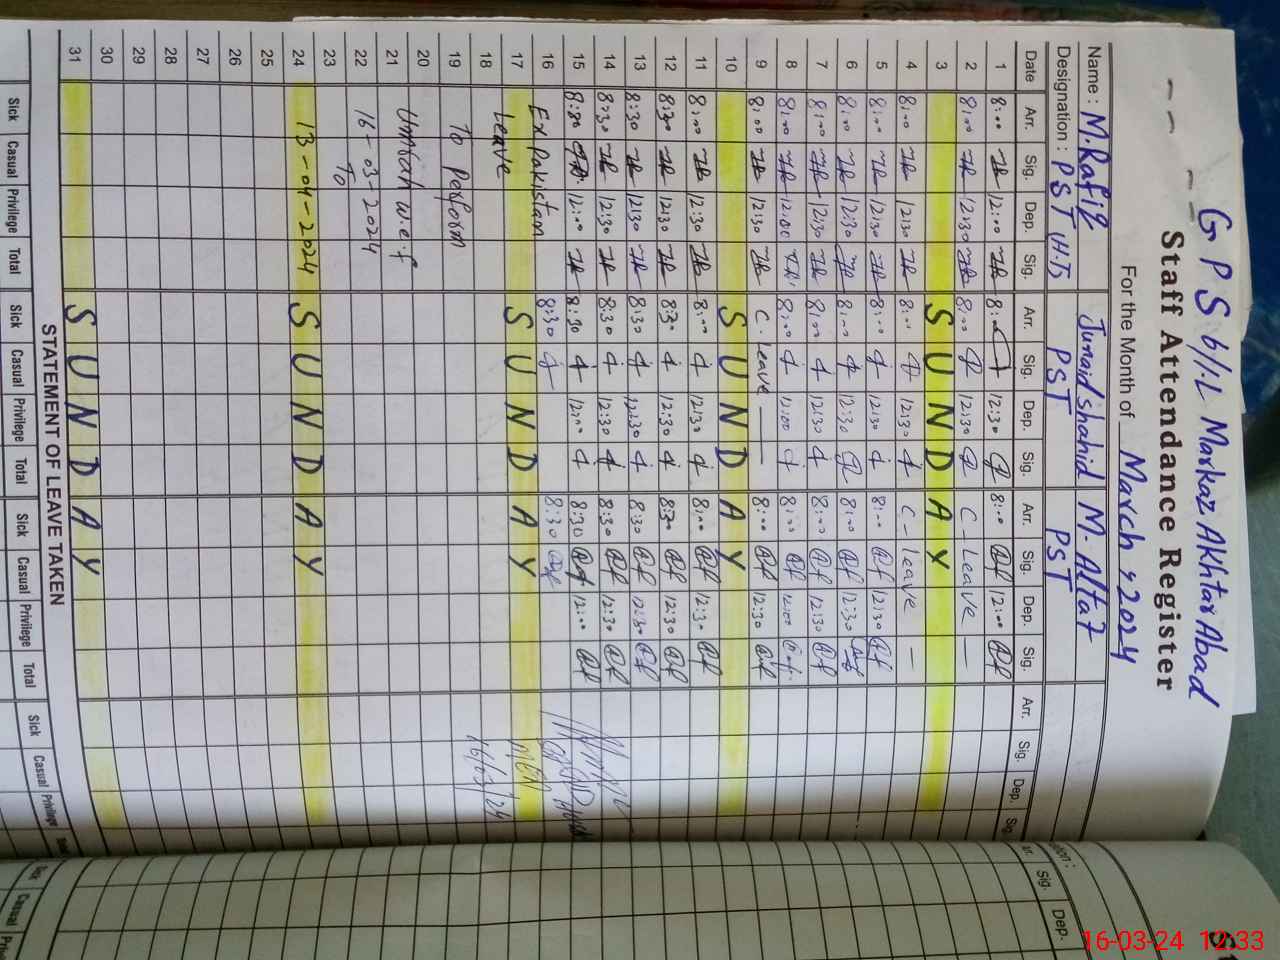 G P S 6/1.L Markaz Akhtar Abad
Staff Attendance Register
For the Month of March, 2024
Name : M. Rafiq Junaid shahid M. Altaf
Designation : PST (H.T) PST PST
Date Arr. Sig. Dep. Sig. Arr. Sig. Dep. Sig. Arr. Sig. Dep. Sig. Arr. Sig. Dep. Sig.
1 8:00 12:00 8:00 12:30 8:00 12:00
2 8:00 12:30 8:00 12:30 C - Leave —
3 SUNDAY
4 8:00 12:30 8:00 12:30 C - Leave —
5 8:00 12:30 8:00 12:30 8:00 12:30
6 8:00 12:30 8:00 12:30 8:00 12:30
7 8:00 12:30 8:00 12:30 8:00 12:30
8 8:00 12:00 8:00 12:00 8:00 12:00
9 8:00 12:30 C. Leave — 8:00 12:30
10 SUNDAY
11 8:00 12:30 8:00 12:30 8:00 12:30
12 8:30 12:30 8:30 12:30 8:30 12:30
13 8:30 12:30 8:30 12:30 8:30 12:30
14 8:30 12:30 8:30 12:30 8:30 12:30
15 8:30 12:00 8:30 12:00 8:30 12:00
16 Ex Pakistan 8:30 8:30
17 Leave SUNDAY MEA
18 16/03/24
19 To Perform
20
21 Umrah w.e.f
22 16-03-2024
23 To
24 13-04-2024 SUNDAY
25
26
27
28
29
30
31 SUNDAY
STATEMENT OF LEAVE TAKEN
Sick Casual Privilege Total Sick Casual Privilege Total Sick Casual Privilege Total Sick Casual Privilege
Sig. Dep.
Sick Casual
16-03-24 12:33